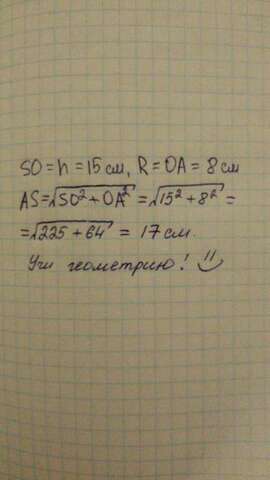 SO = h = 15 см, R = OA = 8 см
AS = √SO² + OA² = √15² + 8² =
= √225 + 64 = 17 см.
Учи геометрию! :)